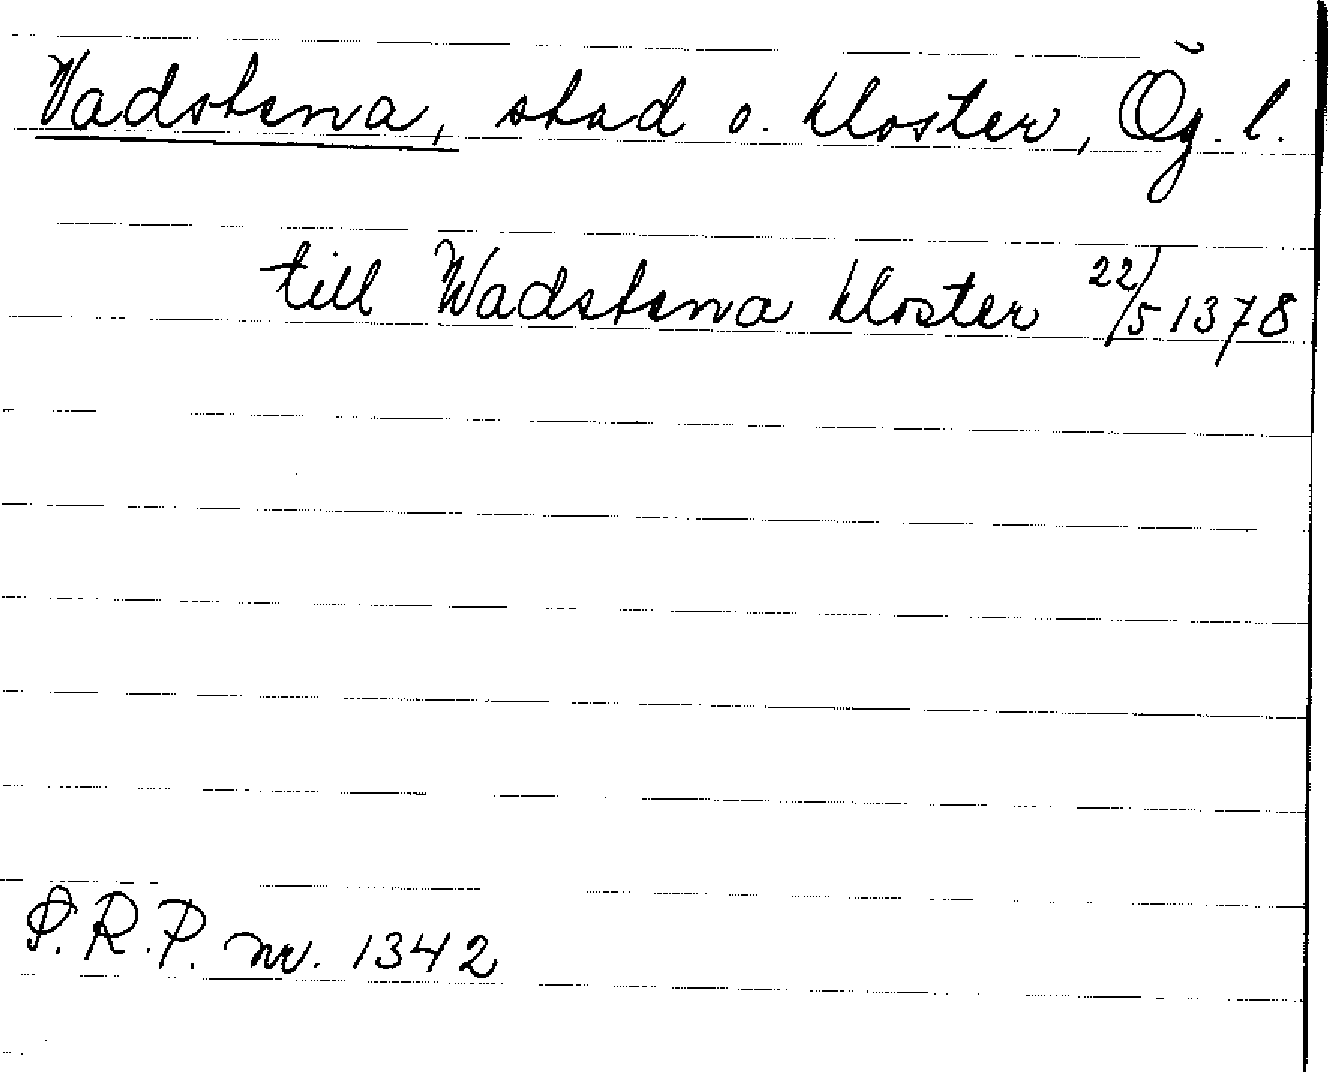 Vadstena, stad o. kloster, Ög. l.
till Wadstena kloster 22/5 1378
S.R.P. nr. 1342